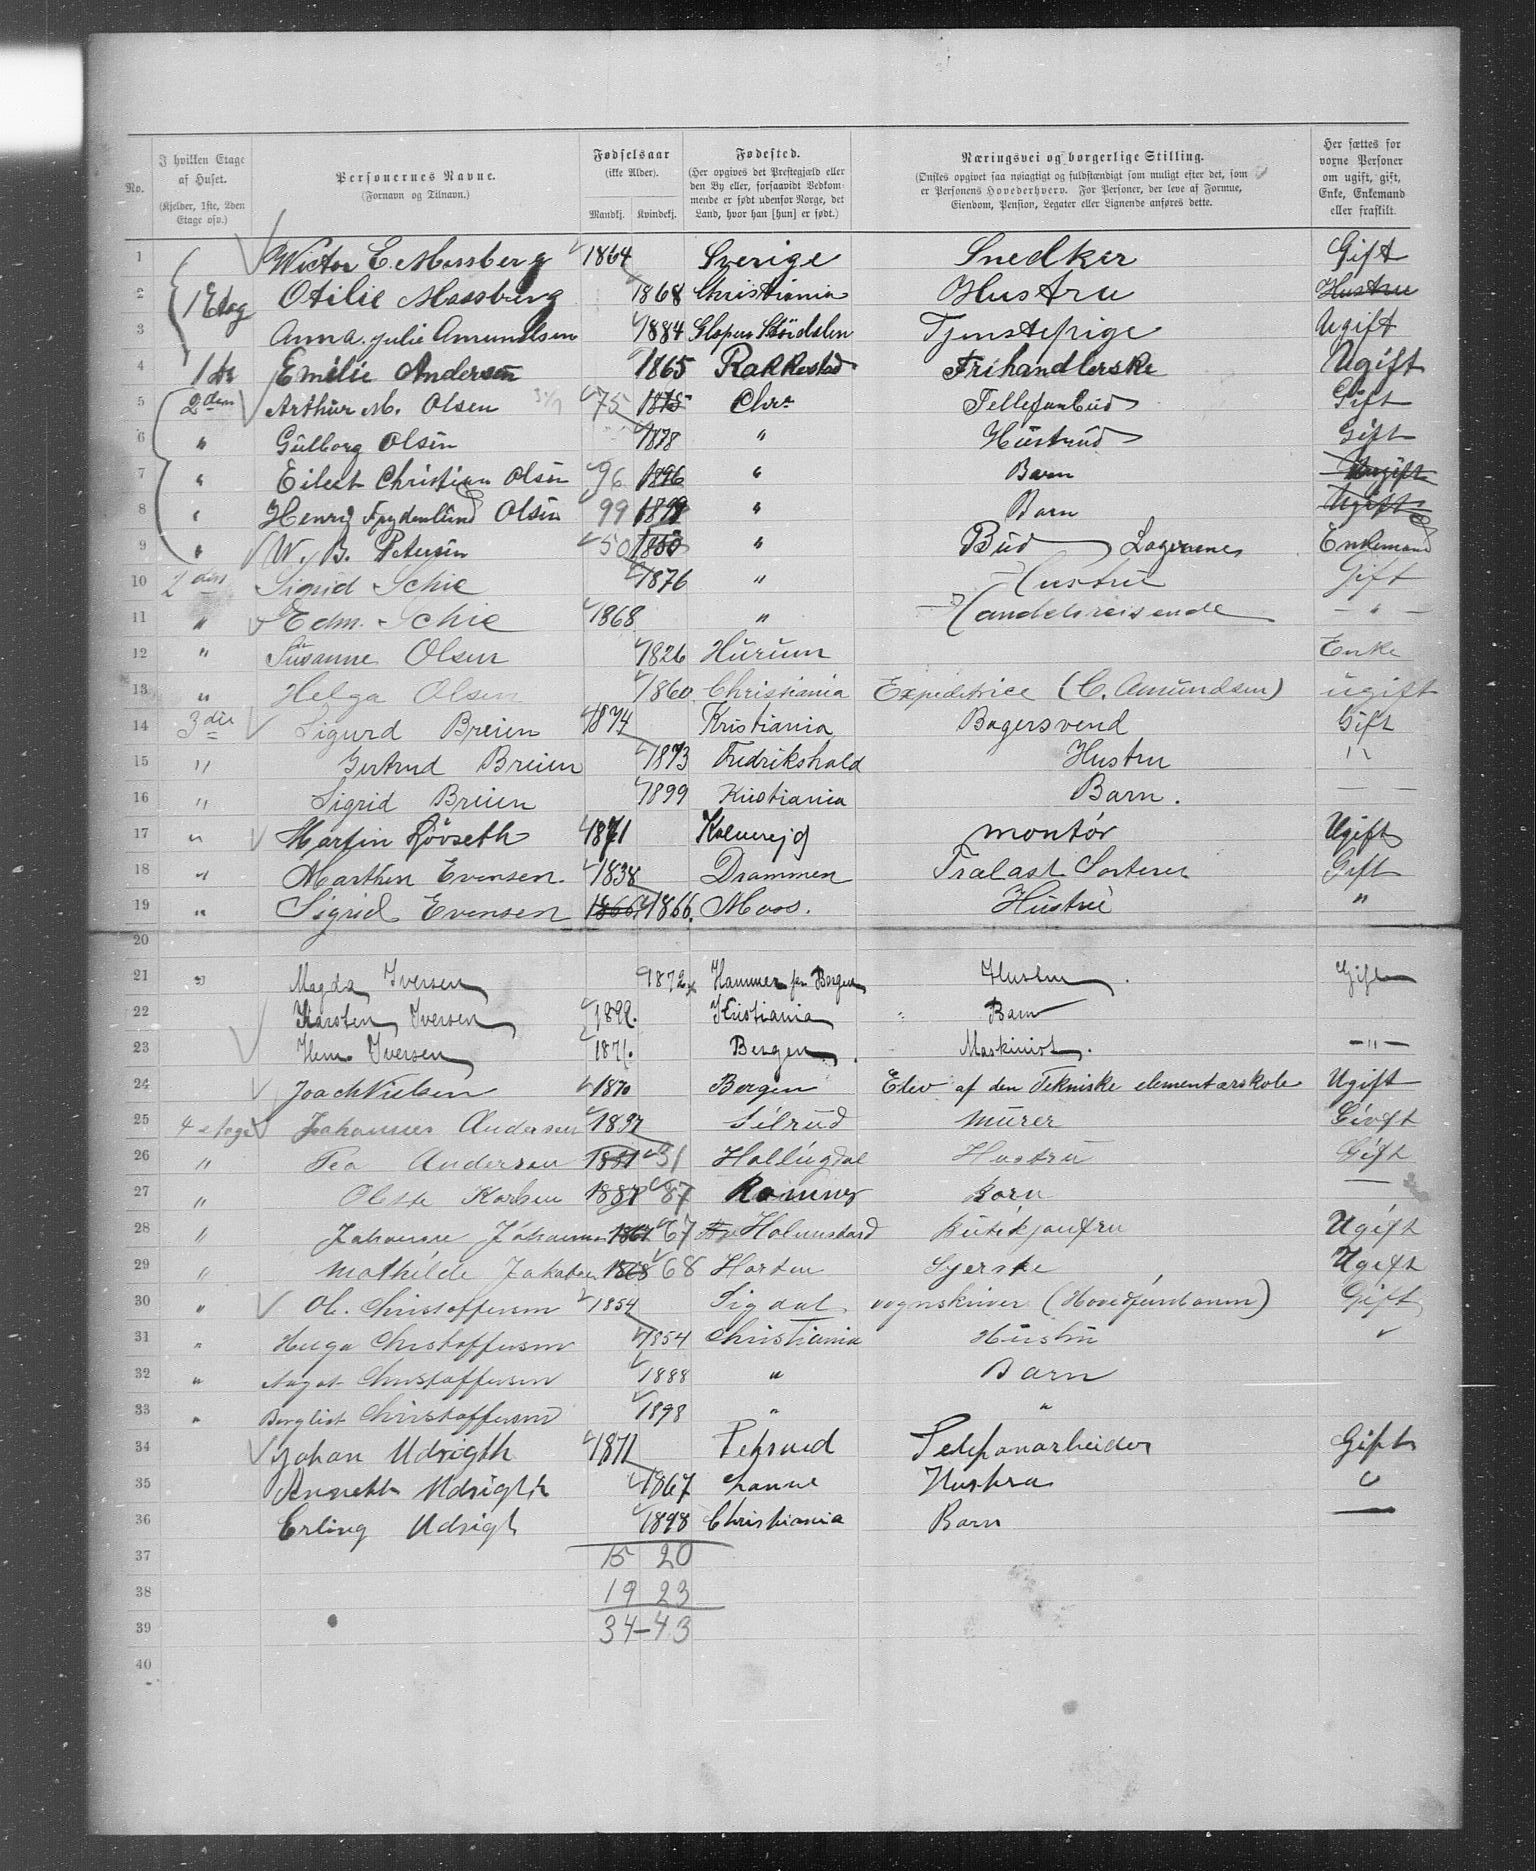 No. I hvilken Etage af Huset. (Kjelder, 1ste, 2den Etage osv.) Personernes Navne. (Fornavn og Tilnavn.) Fødselsaar (ikke Alder). Mandkj. Kvindekj. Fødested. (Her opgives det Prestegjæld eller den By eller, forsaavidt Vedkommende er født udenfor Norge, det Land, hvor han [hun] er født.) Næringsvei og borgerlige Stilling. (Ønskes opgivet saa nøiagtigt og fuldstændigt som muligt efter det, som er Personens Hovederhverv. For Personer, der leve af Formue, Eiendom, Pension, Legater eller Lignende anføres dette. Her sættes for voxne Personer om ugift, gift, Enke, Enkemand eller fraskilt.
1 Wictor E. Mossberg 1864 Sverige Snedker Gift
2 1 Etag Otilie Mossberg 1868 Christiania Hustru Hustru
3 Anna Julie Amundsen 1884 Tjenstepige Ugift
4 1ste Emilie Andersen 1865 Rakkestad Frihandlerske Ugift
5 2den Arthur M. Olsen 75 1875 Chr.a Tellefonbud Gift
6 " Gulborg Olsen 1878 " Hustrud Gift
7 " Eilert Christian Olsen 96 1896 " Barn Ugift
8 " Henry Frydenlund Olsen 99 1899 " Barn Ugift
9 " W. B. Petersen 50 1850 " Bud Enkemand
10 2den Sigrid Schie 1876 " Hustru Gift
11 " Edm. Schie 1868 " Handelsreisende — " —
12 " Susanne Olsen 1826 Hurum Enke
13 " Helga Olsen 1860 Christiania Expeditrice (C. Amundsen) ugift
14 3die Sigurd Breien 1874 Kristiania Bagersvend Gift
15 " Gertrud Breien 1873 Fredrikshald Hustru "
16 " Sigrid Breien 1899 Kristiania Barn. —
17 " Martin Røvseth 1871 montør Ugift
18 " Marthin Evensen 1838 Drammen Tralast Sorterer Gift
19 " Sigrid Evensen 1866 1866. Moss. Hustru "
20
21 " Magda Iversen 1872 Hammer pr. Bergen Hustru Gift
22 Karsten Iversen 1899. Kristiania Barn
23 Herm. Iversen 1871. Bergen. Maskinist. — " —
24 Joach Nielsen 1870 Bergen Elev af den Tekniske elementarskole Ugift
25 4 etage Johannes Andersen murer Givft
26 " Tea Andersen Hallingdal Hustru Gift
27 " Karlsen 1887 87 barn —
28 " 1867 67 Ugift
29 " Mathilde 1868 68 Horten Syerske Ugift
30 " Ol. Christoffersen 1854 Sigdal vognskriver (Hovedjernbanen) Gift
31 " Helga Christoffersen 1854 Christiania Hustru "
32 " Aagot Christoffersen 1888 " Barn
33 " Bergliot Christoffersen 1898 " "
34 Johan Udsigth 1871 Telefonarbeider Gift
35 Annette Udsigth 1867 Hustru "
36 Erling Udsigt 1898 Christiania Barn —
37 15 20
38 19 23
39 34–43
40